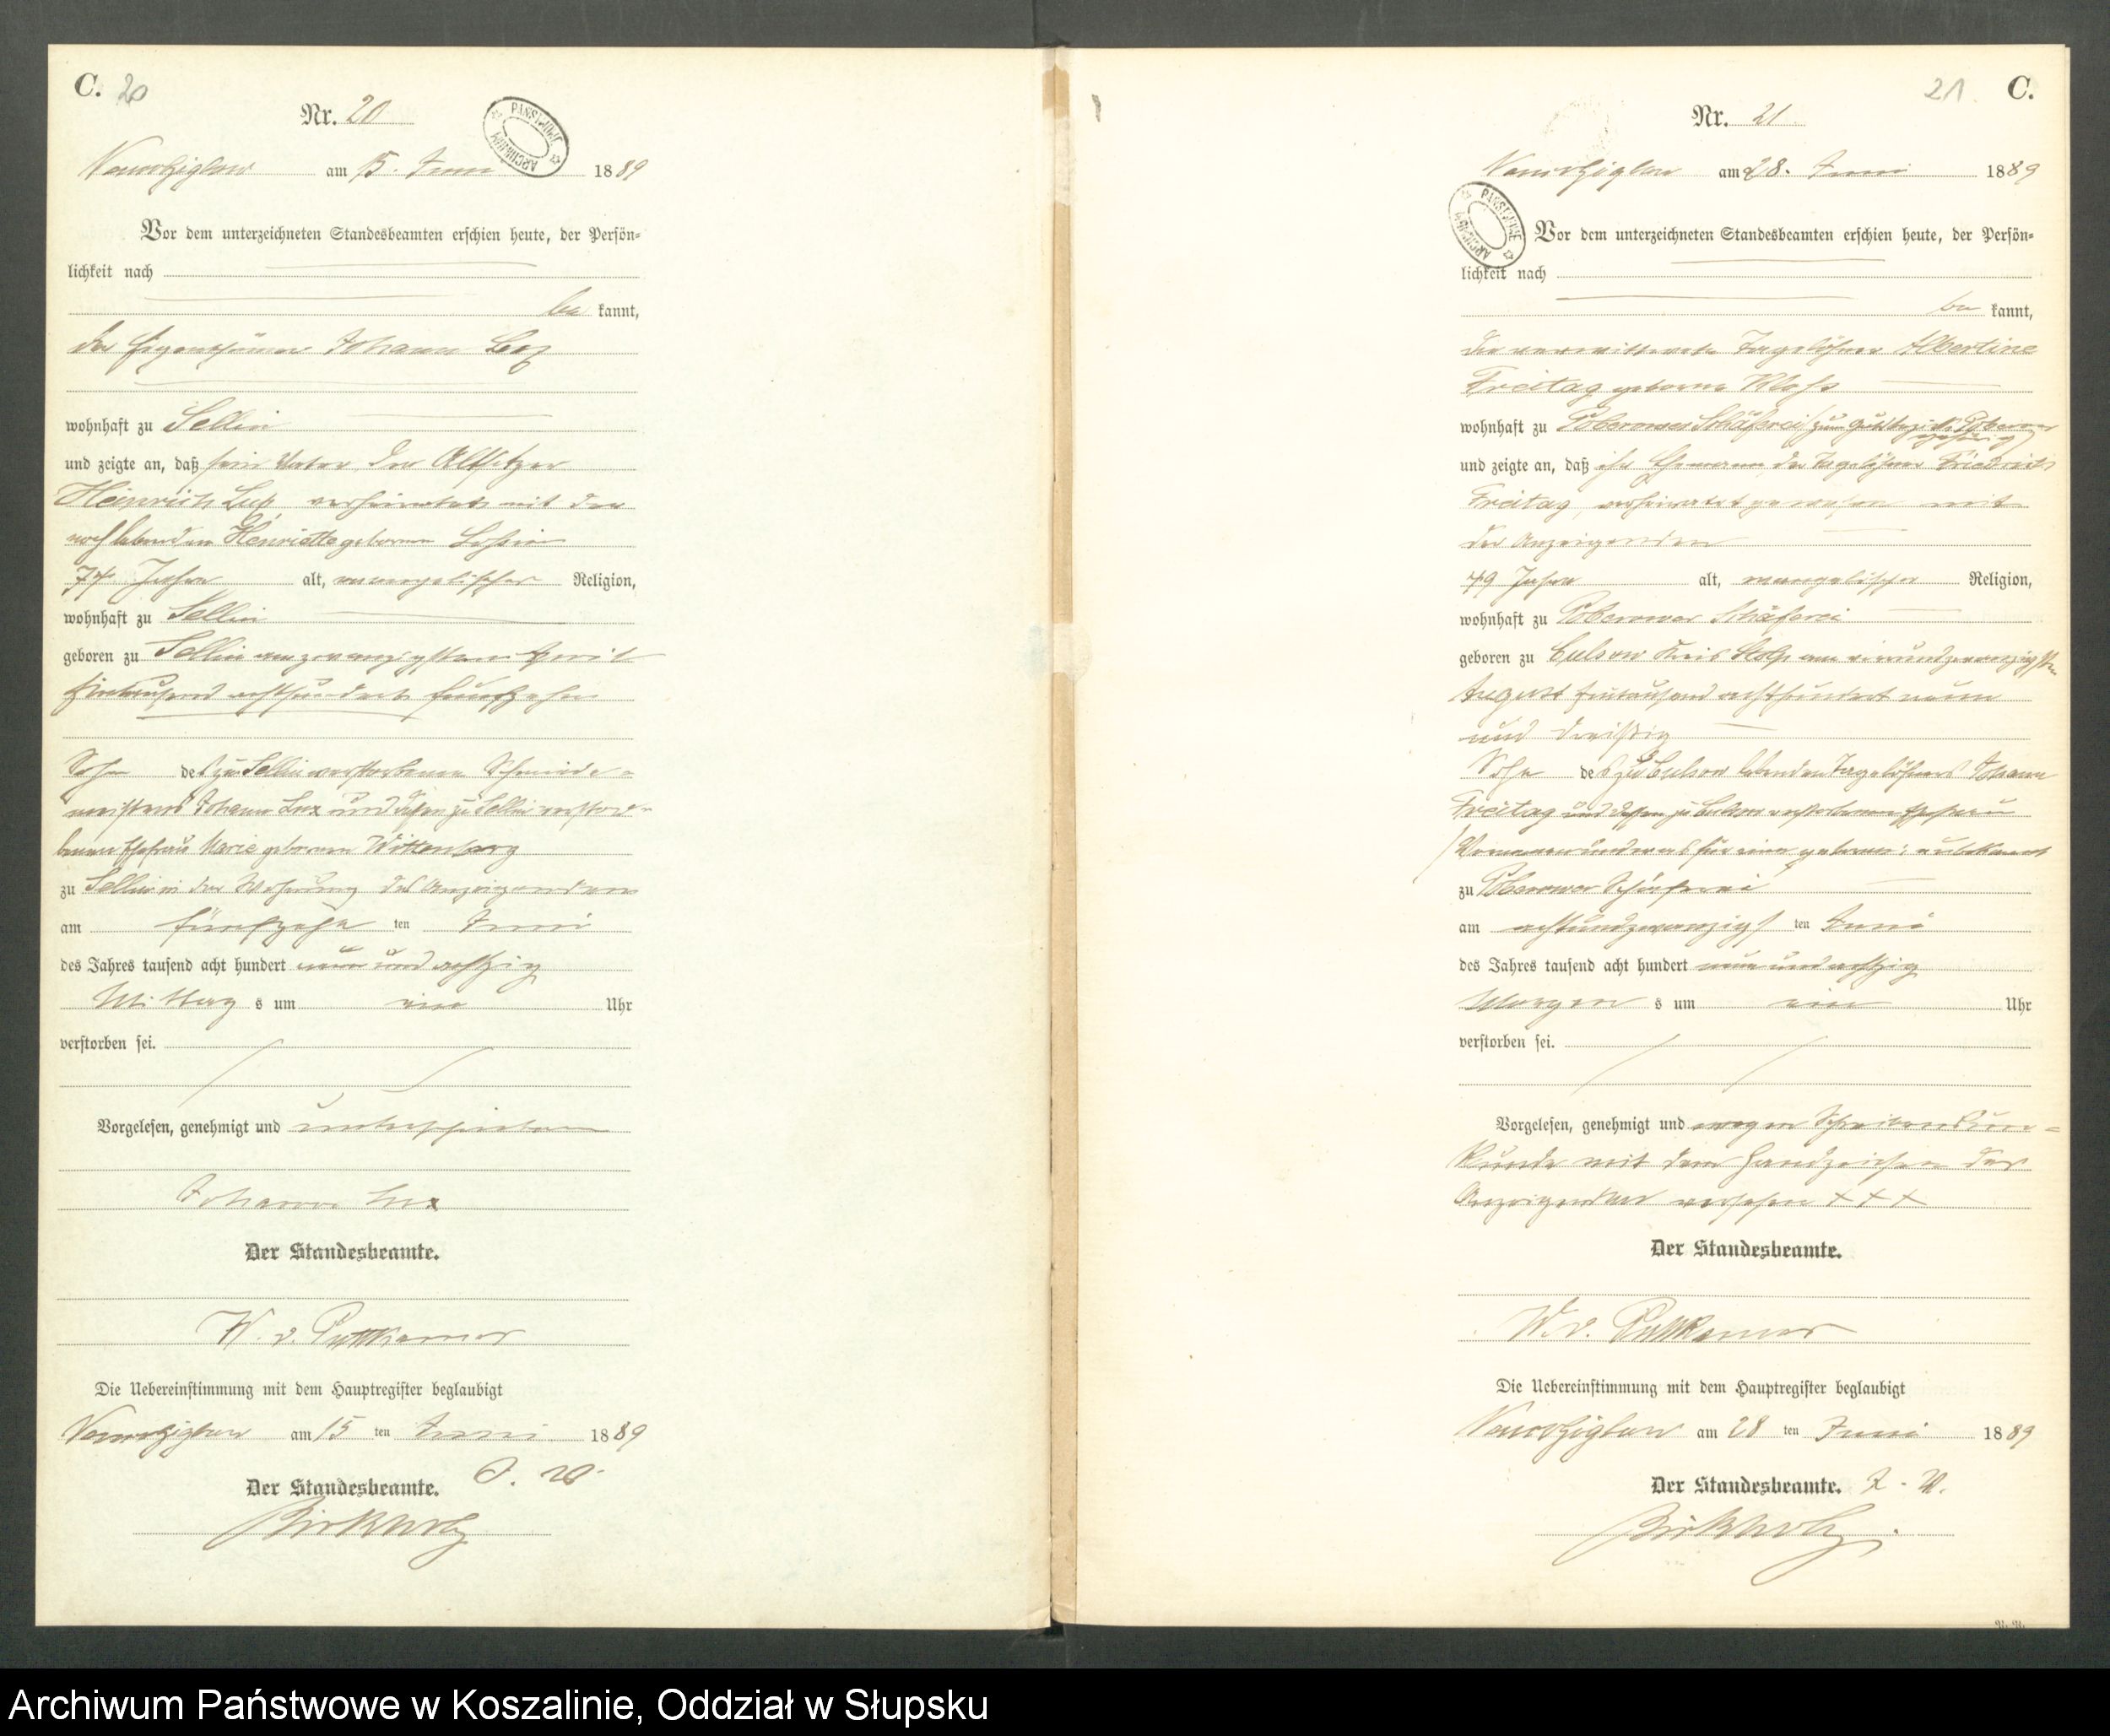 C. 20
Nr. 20
PAŃSTWOWE ARCHIWUM
am 15. Juni 1889
Vor dem unterzeichneten Standesbeamten erschien heute, der Persön-
lichkeit nach
be kannt,
der Eigenthümer Johann
wohnhaft zu Sellin
und zeigte an, daß sein Vater der Altsitzer
Heinrich verheirathet mit der
noch lebenden Henriette geborenen
74 Jahre alt, evangelischer Religion,
wohnhaft zu Sellin
geboren zu Sellin am zwanzigsten April
Eintausend achthundert fünfzehn
Sohn des zu Sellin verstorbenen Schmiede-
meisters Johann Lux und dessen zu Sellin verstor-
benen Ehefrau Marie geborenen Wittenberg
zu Sellin in der Wohnung des Anzeigenden
am fünfzehn ten Juni
des Jahres tausend acht hundert neun und achtzig
Mittag s um ein Uhr
verstorben sei.
Vorgelesen, genehmigt und unterschrieben
Johann Lux
Der Standesbeamte.
W. v. Puttkamer
Die Uebereinstimmung mit dem Hauptregister beglaubigt
am 15 ten Juni 1889
Der Standesbeamte.
Birkholz
21 C.
Nr. 21
PAŃSTWOWE ARCHIWUM
am 28. Juni 1889
Vor dem unterzeichneten Standesbeamten erschien heute, der Persön-
lichkeit nach
be kannt,
die verwittwete Tagelöhner Albertine
Freitag geborene
wohnhaft zu Poberower Schäferei (zum Gutsbezirk Poberow
gehörig)
und zeigte an, daß ihr Ehemann der Tagelöhner Friedrich
Freitag, verheirathet gewesen mit
der Anzeigenden
49 Jahre alt, evangelischer Religion,
wohnhaft zu Poberower Schäferei
geboren zu Culsow Kreis Stolp am vierundzwanzigsten
August Eintausend achthundert neun
und dreißig
Sohn des zu Culsow lebenden Tagelöhners Johann
Freitag und dessen zu Culsow verstorbenen Ehefrau
geborene: unbekannt
zu Poberower Schäferei
am achtundzwanzigs ten Juni
des Jahres tausend acht hundert neun und achtzig
Morgen s um ein Uhr
verstorben sei.
Vorgelesen, genehmigt und wegen Schreibensun-
kunde mit dem Handzeichen der
Anzeigenden versehen + + +
Der Standesbeamte.
W. v. Puttkamer
Die Uebereinstimmung mit dem Hauptregister beglaubigt
am 28 ten Juni 1889
Der Standesbeamte.
Birkholz
Archiwum Państwowe w Koszalinie, Oddział w Słupsku